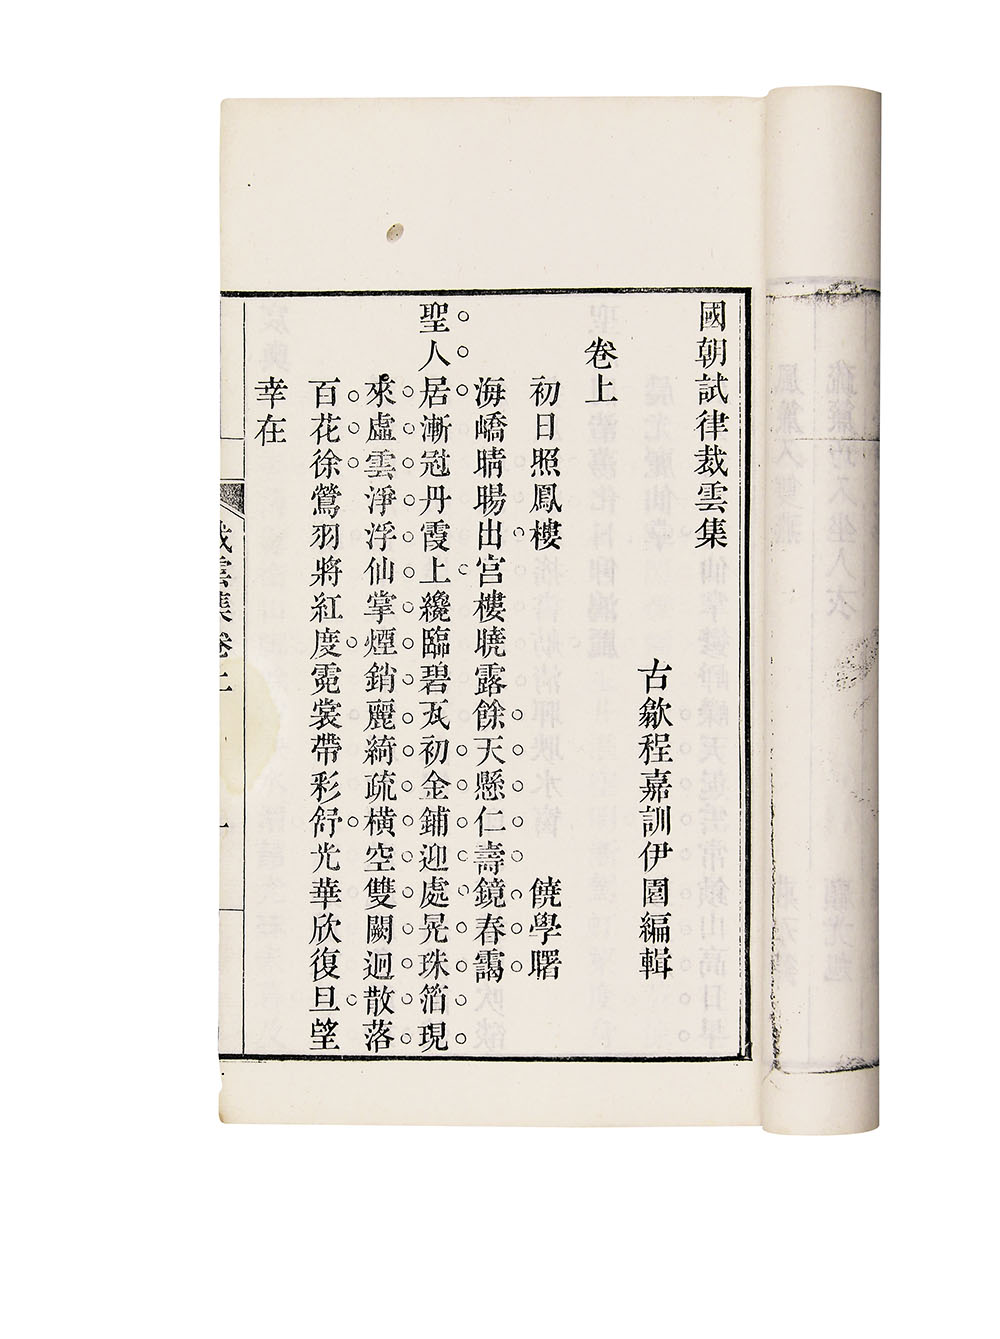 國朝試律裁雲集
古歙程嘉訓伊園編輯
卷上
初日照鳳樓　饒學曙
海嶠晴暘出宮樓曉露餘天懸仁壽鏡春靄
聖人居漸冠丹霞上纔臨碧瓦初金鋪迎處晃珠箔現
來虛雲淨浮仙掌煙銷麗綺疏橫空雙闕迥散落
百花徐鶯羽將紅度霓裳帶彩舒光華欣復旦望
幸在
裁雲集卷上
一